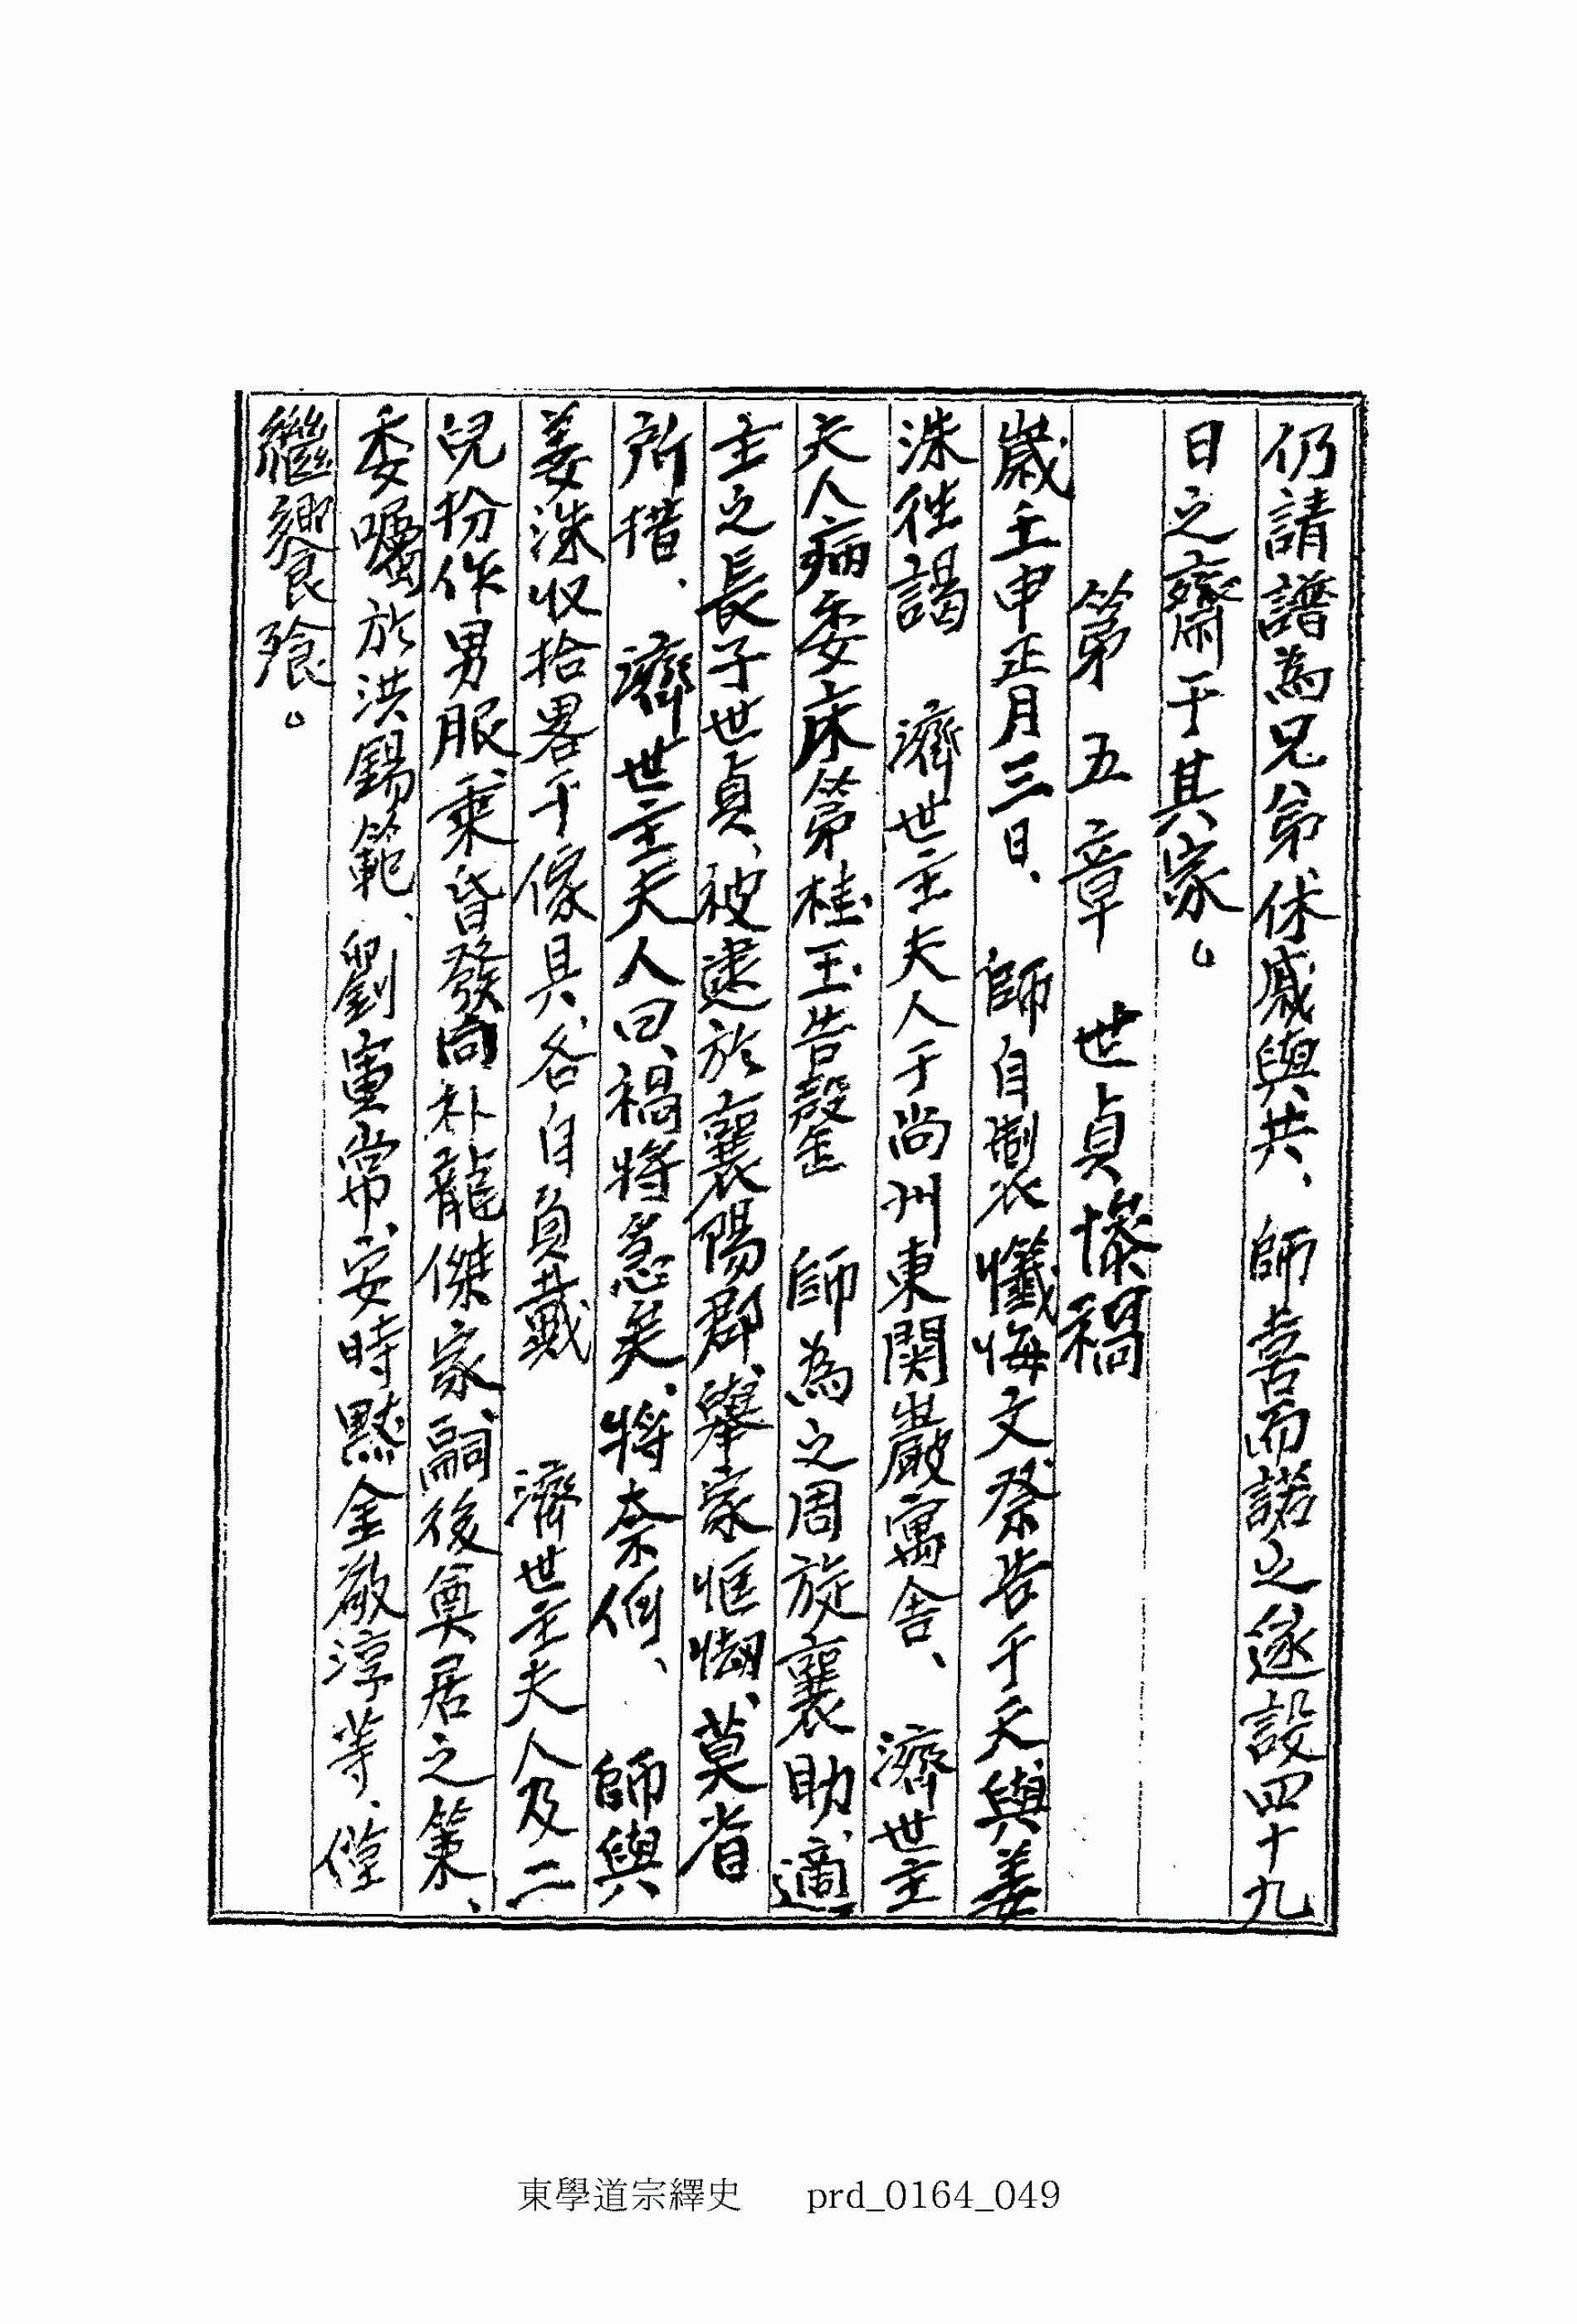 仍請譜為兄弟休戚與共、師喜而諾之遂設四十九
日之齋于其家。
第五章 世貞慘禍
歲壬申正月三日、師自製懺悔文祭告于天、與姜
洙徃謁 濟世主夫人于尚州東関巖寓舍、濟世主
夫人病委床第桂玉告罄 師為之周旋襄助、適
主之長子世貞、被逮於襄陽郡、舉家恇㤼、莫省
所措、濟世主夫人曰、禍將急矣、將奈何、師與
姜洙収拾畧干傢具、各自負戴 濟世主夫人及二
兒扮作男服、乘昏發向朴龍傑家、嗣後奠居之策、
委囑於洪錫範、劉寅常、安時黙金敬淳等、僅
繼饔飱。
東學道宗繹史 prd_0164_049